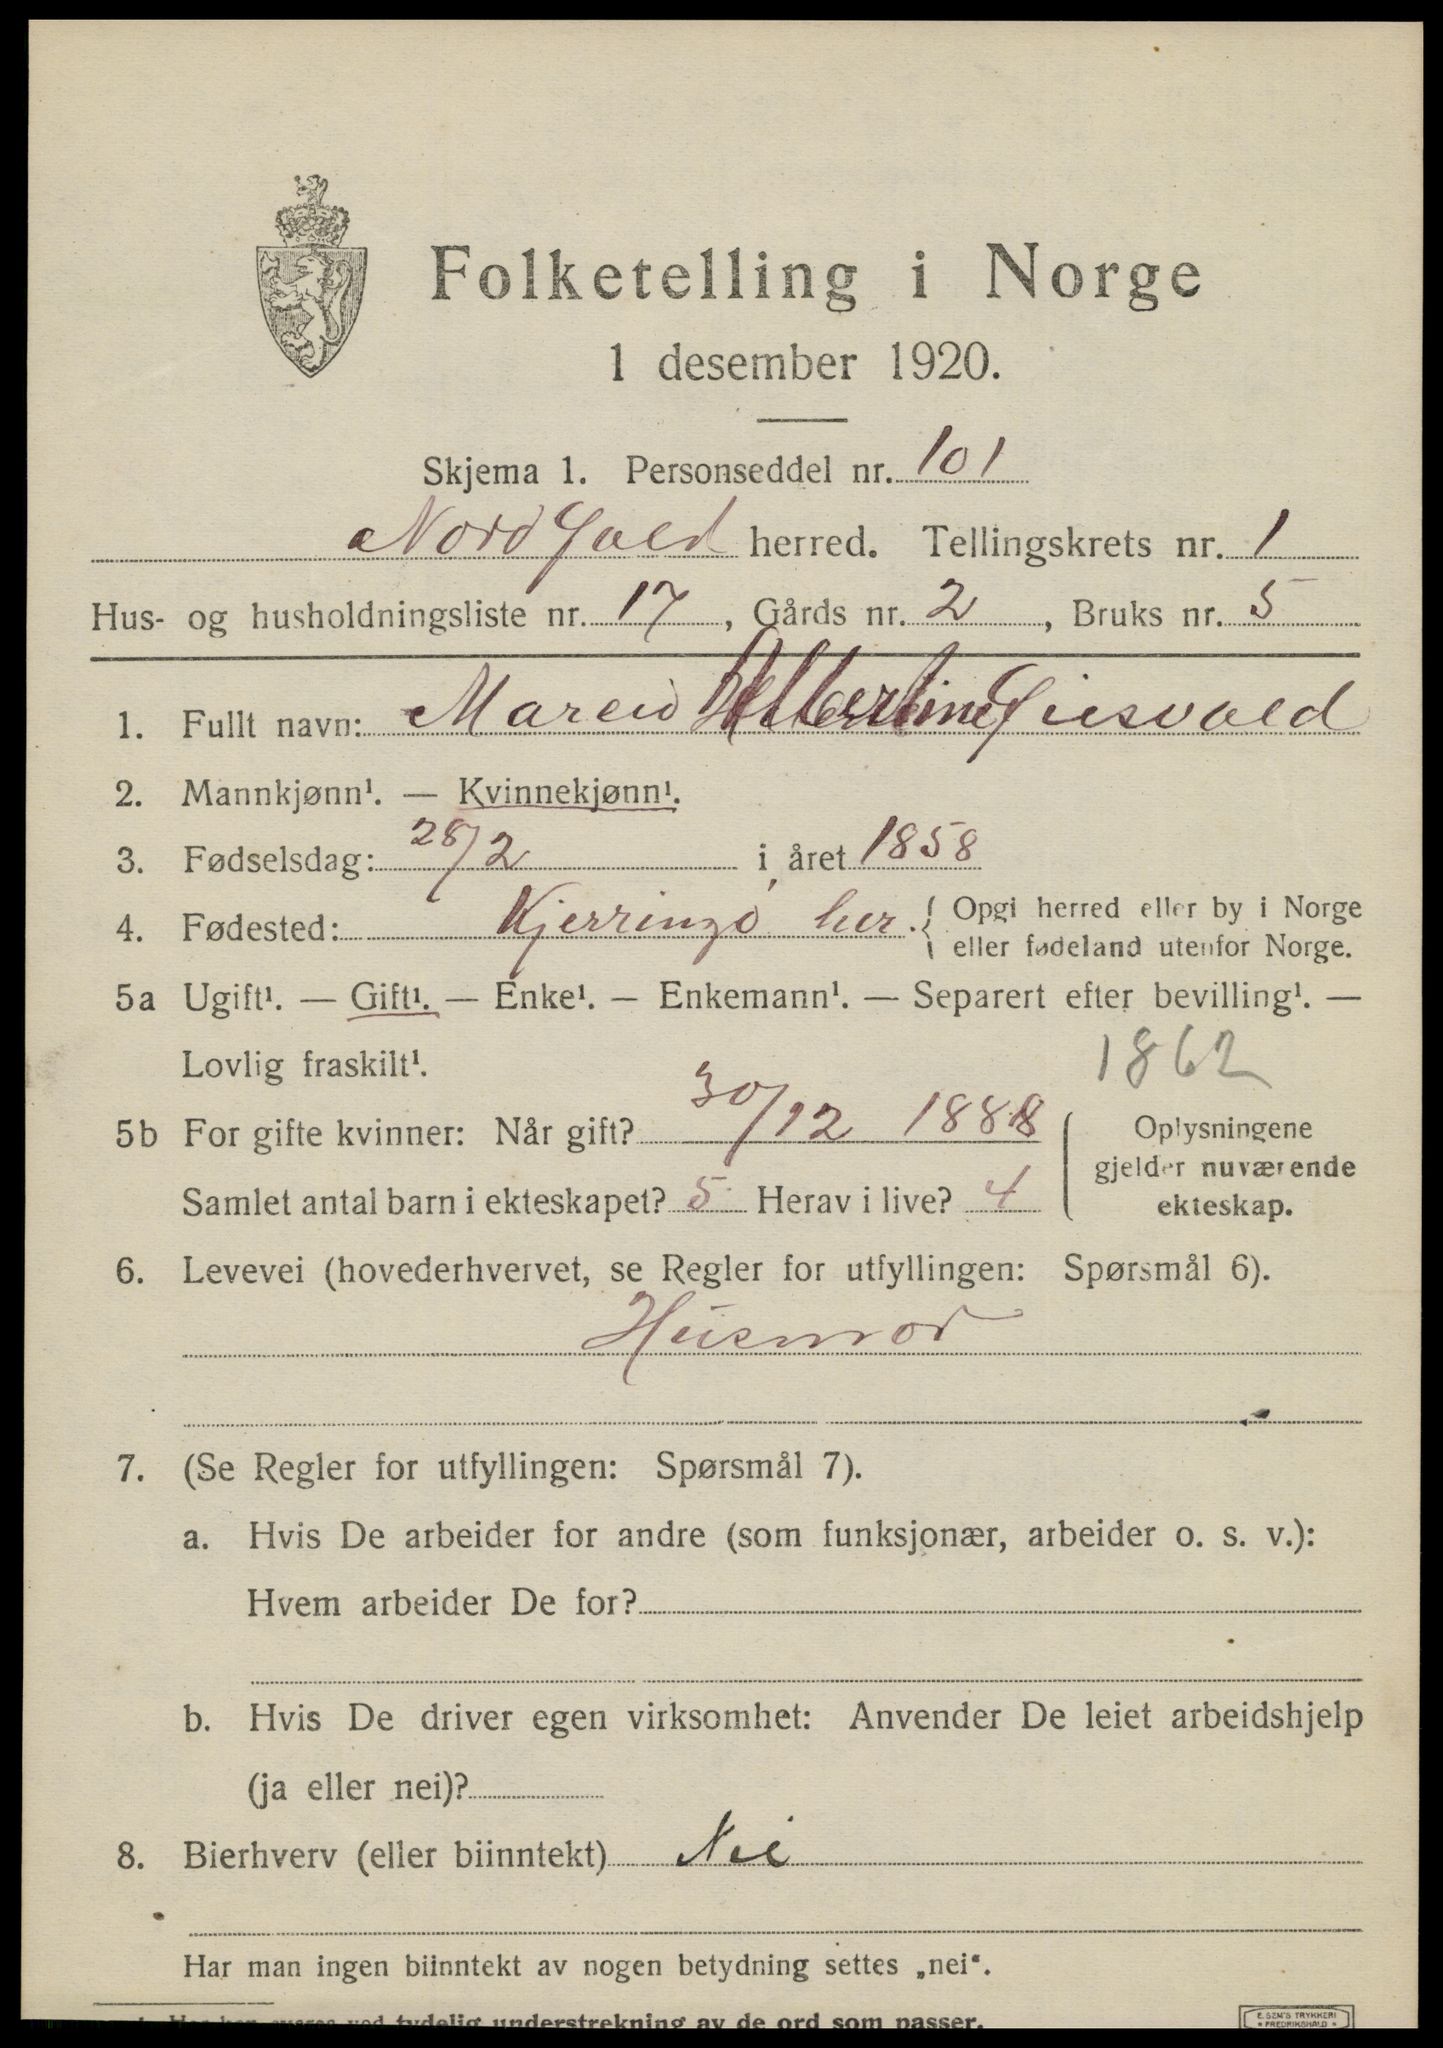 Folketelling i Norge
1 desember 1920.
Skjema 1. Personseddel nr. 101
Nordfold herred. Tellingskrets nr. 1
Hus- og husholdningsliste nr. 17, Gårds nr. 2, Bruks nr. 5
1. Fullt navn: Albertine
2. Mannkjønn¹. — Kvinnekjønn¹.
3. Fødselsdag: 28/2 i året 1858
4. Fødested: Kjerringö her. { Opgi herred eller by i Norge
eller fødeland utenfor Norge.
5a Ugift¹. — Gift¹. — Enke¹. — Enkemann¹. — Separert efter bevilling¹. —
Lovlig fraskilt¹.
1862
5b For gifte kvinner: Når gift? 30/12 1888
Samlet antal barn i ekteskapet? 5 Herav i live? 4
Oplysningene
gjelder nuværende
ekteskap.
6. Levevei (hovederhvervet, se Regler for utfyllingen: Spørsmål 6).
Husmor
7. (Se Regler for utfyllingen: Spørsmål 7).
a. Hvis De arbeider for andre (som funksjonær, arbeider o. s. v.):
Hvem arbeider De for?
b. Hvis De driver egen virksomhet: Anvender De leiet arbeidshjelp
(ja eller nei)?
8. Bierhverv (eller biinntekt) Nei
Har man ingen biinntekt av nogen betydning settes „nei“.
tydelig understrekning av de ord som passer.
E. SEM'S TRYKKERI
FREDRIKSHALD